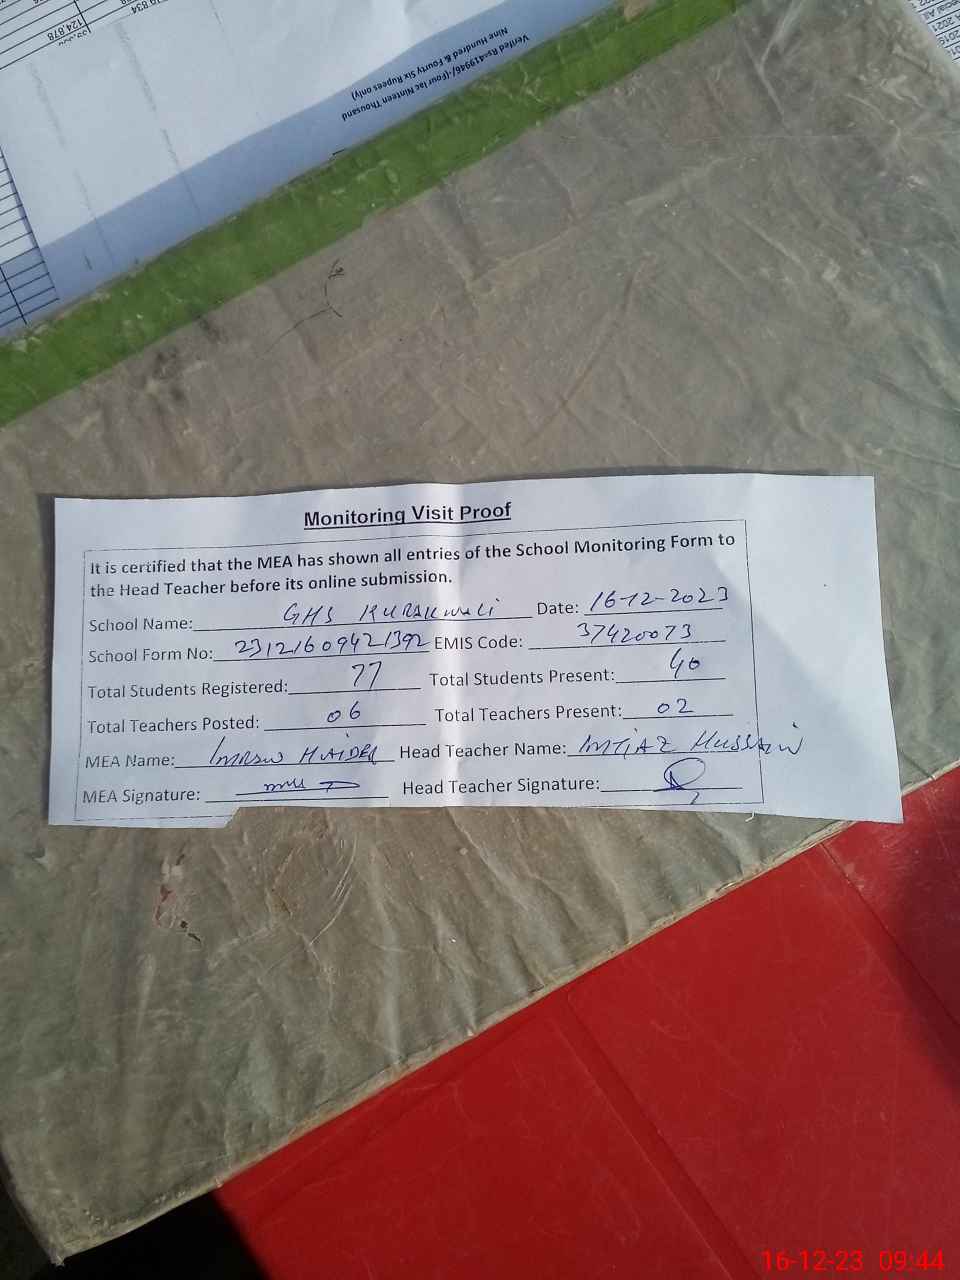 124,878
Verified Rs:419946/-(Four lac Ninteen Thousand
Nine Hundred & Fourty Six Rupees only)
Monitoring Visit Proof
It is certified that the MEA has shown all entries of the School Monitoring Form to
the Head Teacher before its online submission.
School Name: GHS KURAKWALI Date: 16-12-2023
School Form No: 23121609421392 EMIS Code: 37420073
Total Students Registered: 77 Total Students Present: 40
Total Teachers Posted: 06 Total Teachers Present: 02
MEA Name: IMRAN HAIDER Head Teacher Name: IMTIAZ HUSSAIN
MEA Signature: Head Teacher Signature:
16-12-23 09:44